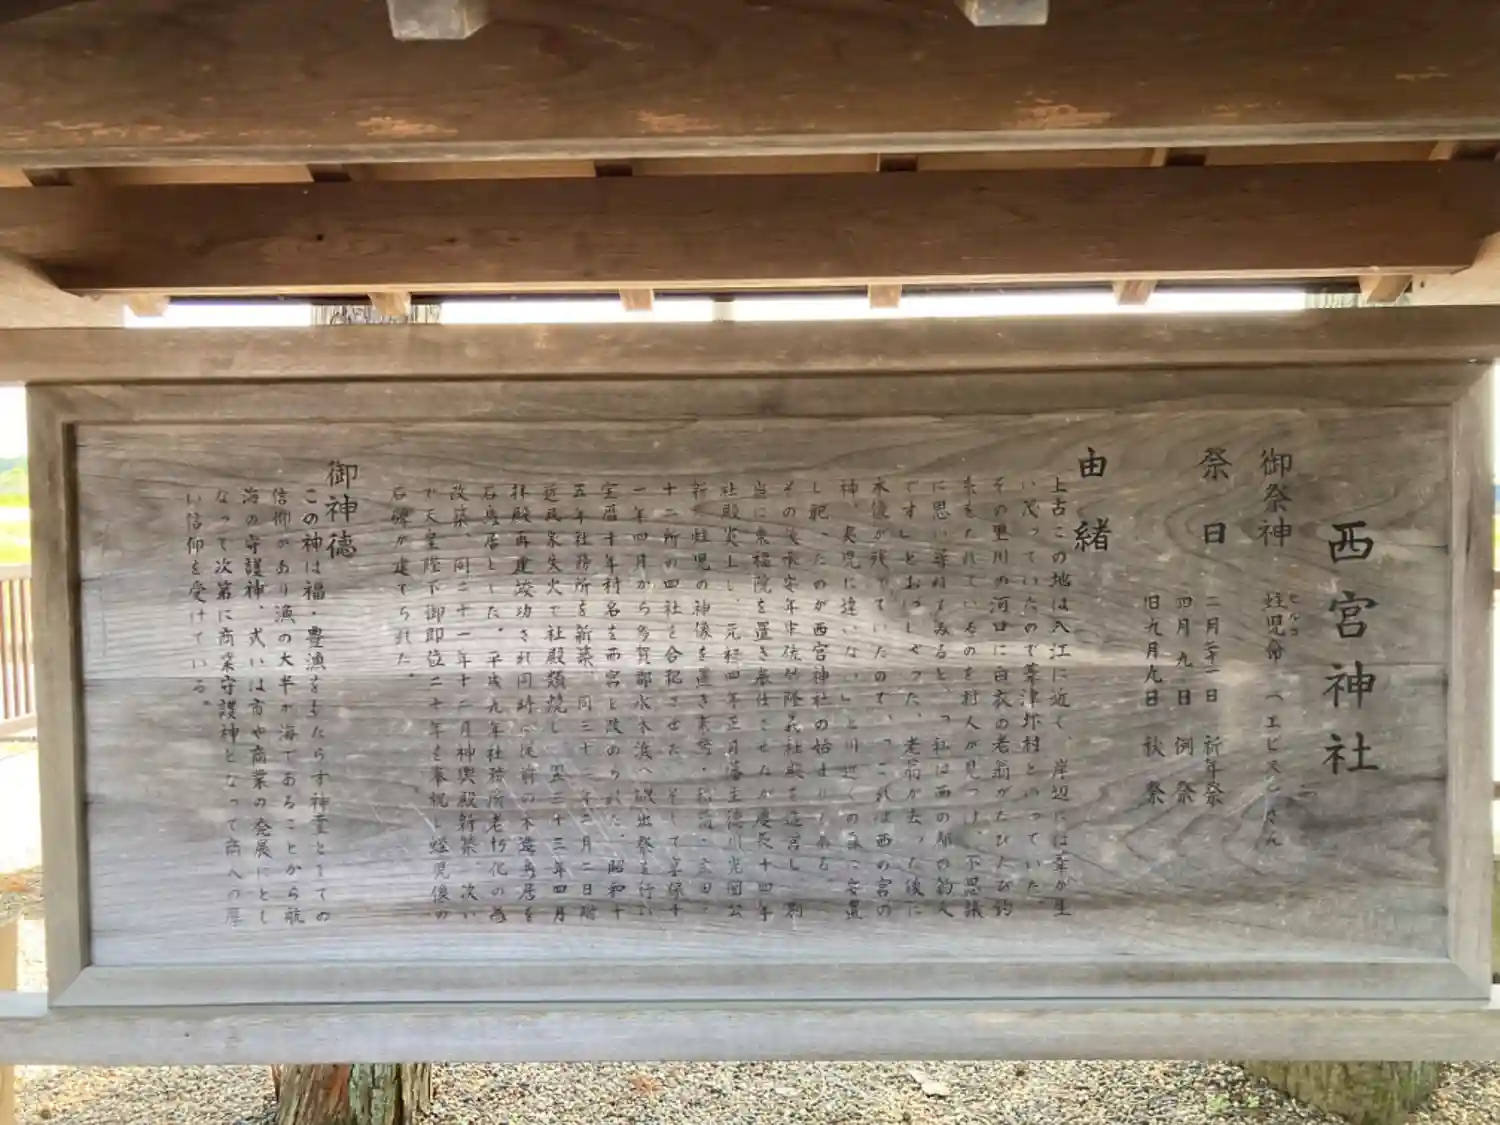 西宮神社
御祭神 蛭児命 (エビスさん)
ヒルコ
祭日 二月二十一日 祈年祭
四月九日 例祭
旧九月九日 秋祭
由緒
上古この地は入江に近く、岸辺には葦が生
い茂っていたので葦津 村といっていた。
その里川の河口に白衣の老翁がたびたび釣
糸をたれているのを村人が見つけ、不思議
に思い尋ねてみると、「私は西の 釣人
です」とおっしゃった、老翁が去った後に
木像が残っていたので、「これは西の宮の
神、夷児に違いない」と川近くの 安置
し祀ったのが西宮神社の始まりである。
その後承安年中佐竹隆義社殿を造営し、別
当に来福院を置き奉仕させたが慶長十四年
社殿炎上し、元禄四年正月藩主徳川光圀公
新に蛭児の神像を置き素鵞・
十二所の四社を合祀させた。そして享保十
一年四月から多賀郡水木浜へ磯出祭を行い
宝暦十年村名を西宮と改められた。昭和十
五年社務所を新築、同三十二年二月二日附
近民家失火で社殿類焼し、翌三十三年四月
拝殿再建竣功され同時に従前の木造鳥居を
石鳥居とした。平成九年社務所老朽化の為
改築、同二十一年十二月神輿殿新築、次い
で天皇陛下御即位二十年を奉祝し蛭児像の
石碑が建てられた。
御神徳
この神は福・豊漁をもたらす神霊としての
信仰があり漁の大半が海であることから航
海の守護神、或いは市や商業の発展にとし
なって次第に商業守護神となって商への厚
い信仰を受けている。